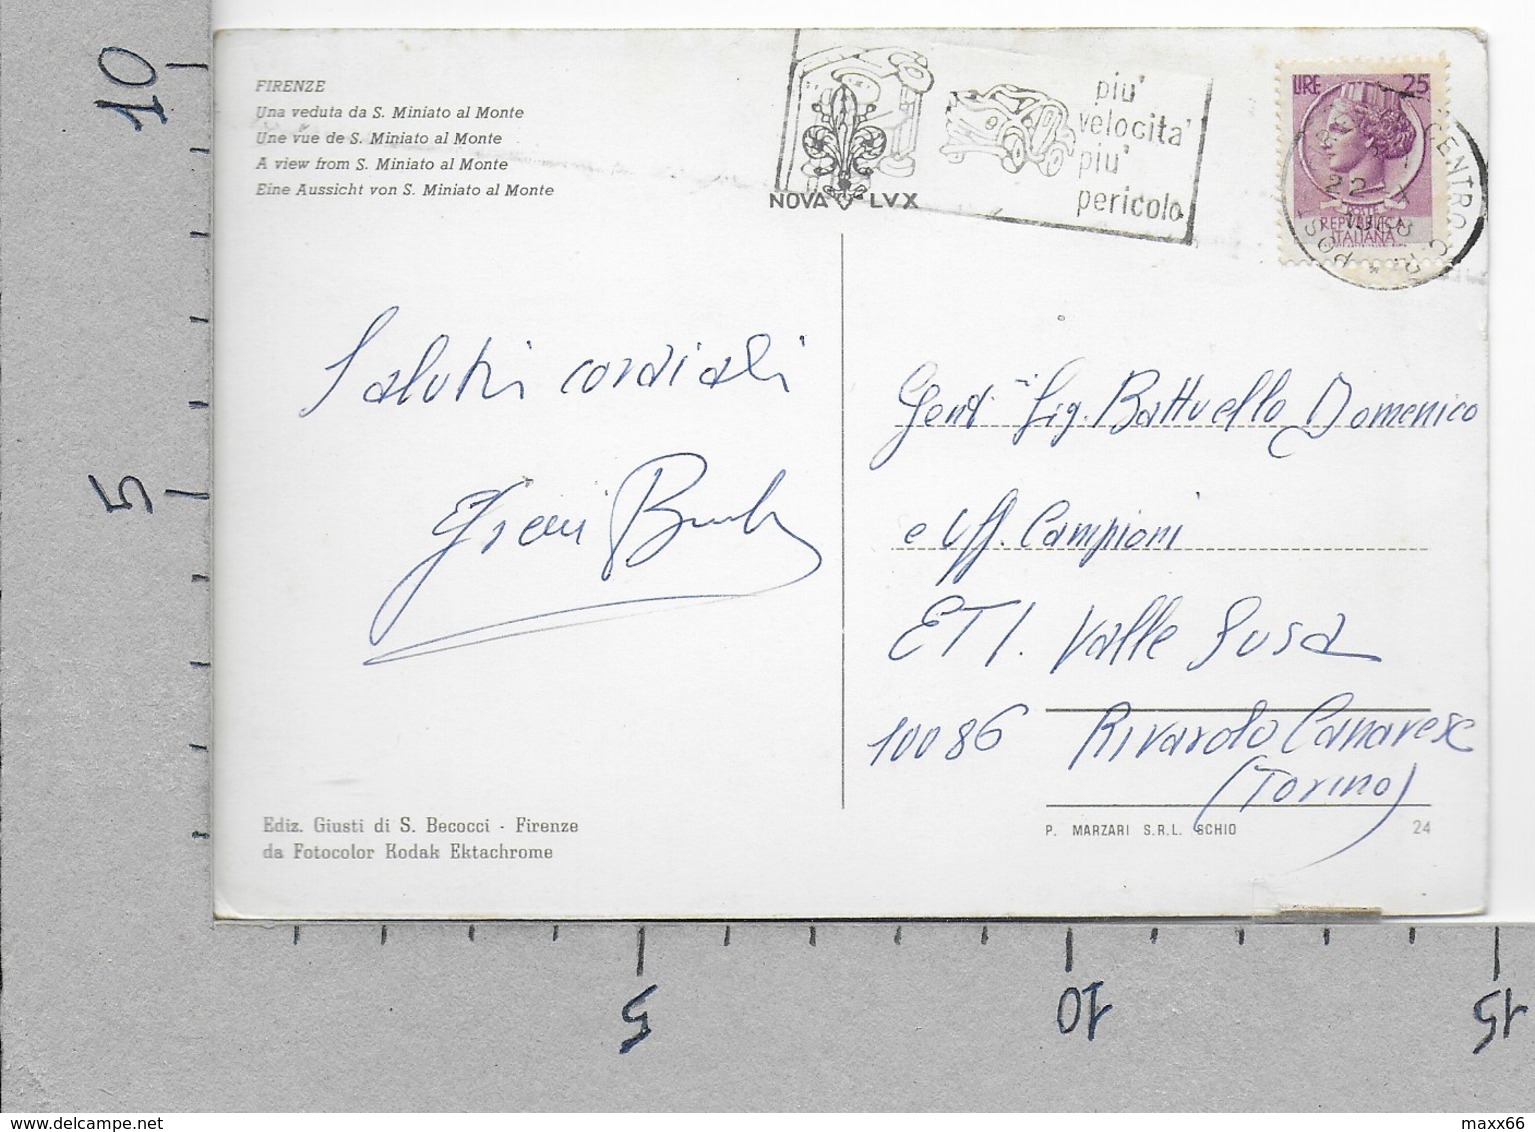 FIRENZE
Una veduta da S. Miniato al Monte
Une vue de S. Miniato al Monte
A view from S. Miniato al Monte
Eine Aussicht von S. Miniato al Monte
NOVA LVX
più
velocità
più
pericolo
LIRE 25
POSTE
REPVBBLICA
ITALIANA
CENTRO
22 X
Saluti cordiali
Gent. Sig. Battuello Domenico
e Uff. Campioni
ETI. Valle Susa
10086 Rivarolo Canavese
(Torino)
Ediz. Giusti di S. Becocci - Firenze
da Fotocolor Kodak Ektachrome
P. MARZARI S.R.L. SCHIO 24
10
5
5
10
15
delcampe.net
maxx66